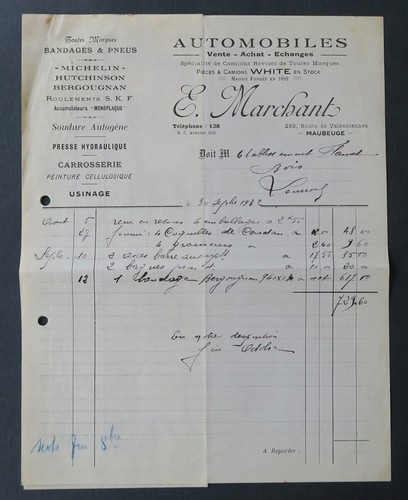 Toutes Marques
BANDAGES & PNEUS
- MICHELIN -
HUTCHINSON
BERGOUGNAN
ROULEMENTS S. K. F.
Accumulateurs "MONOPLAQUE"
Soudure Autogène
PRESSE HYDRAULIQUE
CARROSSERIE
PEINTURE CELLULOSIQUE
USINAGE
AUTOMOBILES
Vente - Achat - Echanges
Spécialité de Camions Revisés de Toutes Marques
PIÈCES & CAMIONS WHITE EN STOCK
E. Marchant
Téléphone : 138
289, Route de Valenciennes
MAUBEUGE
Doit M Etablissement
Bois
30 Septbre 1932
Aout 5 rem en retour 4 emballages a 2.50
27 fourni 4 Coquilles de Coussin a 12.00 48 00
4 graisseurs a 2.40 9 60
Septbre 10 2 axes barre accoupt a 17.50 35 00
2 bagues a 10 "
12 1 bandage Bergougnan net 617.00
729.60
fin Octobre
A Reporter :